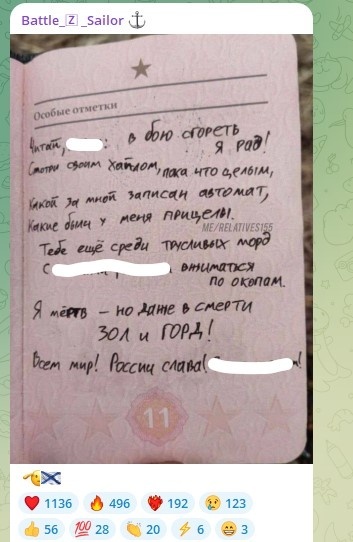 Battle_🆉_Sailor ⚓
Особые отметки
Читай, : в бою сгореть
Я рад!
Смотри своим хайлом, пока что целым,
Какой за мной записан автомат,
Какие были у меня прицелы.
ME/RELATIVES155
Тебе ещё среди трусливых морд
С вжиматься
по окопам.
Я мёртв – но даже в смерти
ЗОЛ и ГОРД!
Всем мир! России слава!
11
1136 496 192 123
56 28 20 6 3